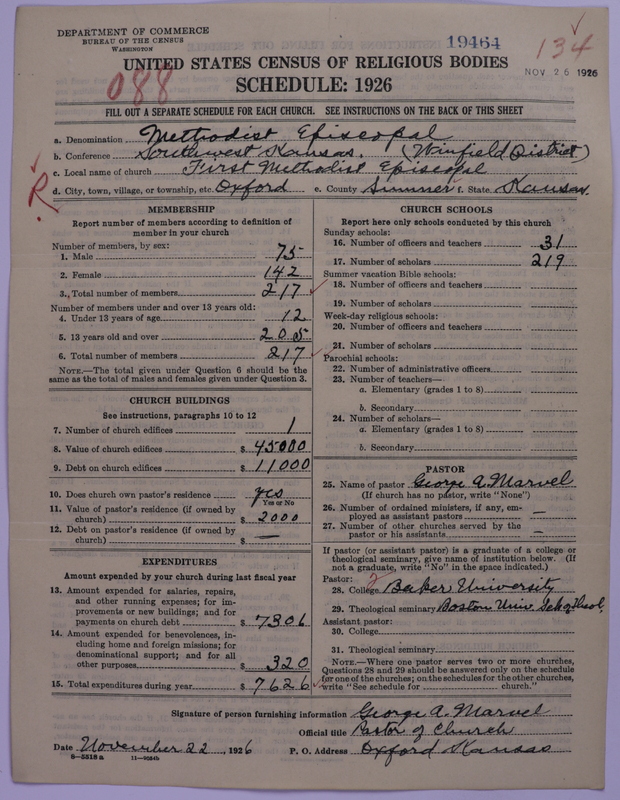 DEPARTMENT OF COMMERCE
BUREAU OF THE CENSUS
WASHINGTON
19464
134
NOV 26 1926
UNITED STATES CENSUS OF RELIGIOUS BODIES
088
SCHEDULE: 1926
FILL OUT A SEPARATE SCHEDULE FOR EACH CHURCH. SEE INSTRUCTIONS ON THE BACK OF THIS SHEET
a. Denomination Methodist Episcopal
b. Conference Southwest Kansas. (Winfield District)
c. Local name of church First Methodist Episcopal
R.
d. City, town, village, or township, etc. Oxford e. County Sumner f. State Kansas.
MEMBERSHIP
Report number of members according to definition of
member in your church
Number of members, by sex:
1. Male 75
2. Female 142
3. Total number of members 217
Number of members under and over 13 years old:
4. Under 13 years of age 12
5. 13 years old and over 205
6. Total number of members 217
NOTE.—The total given under Question 6 should be the
same as the total of males and females given under Question 3.
CHURCH BUILDINGS
See instructions, paragraphs 10 to 12
7. Number of church edifices 1
8. Value of church edifices $ 45000
9. Debt on church edifices $ 11000
10. Does church own pastor's residence yes
Yes or No
11. Value of pastor's residence (if owned by
church) $ 2000
12. Debt on pastor's residence (if owned by
church) $ —
EXPENDITURES
Amount expended by your church during last fiscal year
13. Amount expended for salaries, repairs,
and other running expenses; for im-
provements or new buildings; and for
payments on church debt $ 7306
14. Amount expended for benevolences, in-
cluding home and foreign missions; for
denominational support; and for all
other purposes $ 320
15. Total expenditures during year $ 7626
CHURCH SCHOOLS
Report here only schools conducted by this church
Sunday schools:
16. Number of officers and teachers 31
17. Number of scholars 219
Summer vacation Bible schools:
18. Number of officers and teachers
19. Number of scholars
Week-day religious schools:
20. Number of officers and teachers
21. Number of scholars
Parochial schools:
22. Number of administrative officers
23. Number of teachers—
a. Elementary (grades 1 to 8)
b. Secondary
24. Number of scholars—
a. Elementary (grades 1 to 8)
b. Secondary
PASTOR
25. Name of pastor George A. Marvel
(If church has no pastor, write "None")
26. Number of ordained ministers, if any, em-
ployed as assistant pastors —
27. Number of other churches served by the
pastor or his assistants —
If pastor (or assistant pastor) is a graduate of a college or
theological seminary, give name of institution below. (If
not a graduate, write "No" in the space indicated.)
Pastor:
28. College Baker University
29. Theological seminary Boston Univ. School
Assistant pastor:
30. College
31. Theological seminary
NOTE.—Where one pastor serves two or more churches,
Questions 28 and 29 should be answered only on the schedule
for one of the churches; on the schedules for the other churches,
write "See schedule for church."
Signature of person furnishing information George A. Marvel
Official title Pastor of Church
Date November 22, 1926 P. O. Address Oxford Kansas
8—5518 a